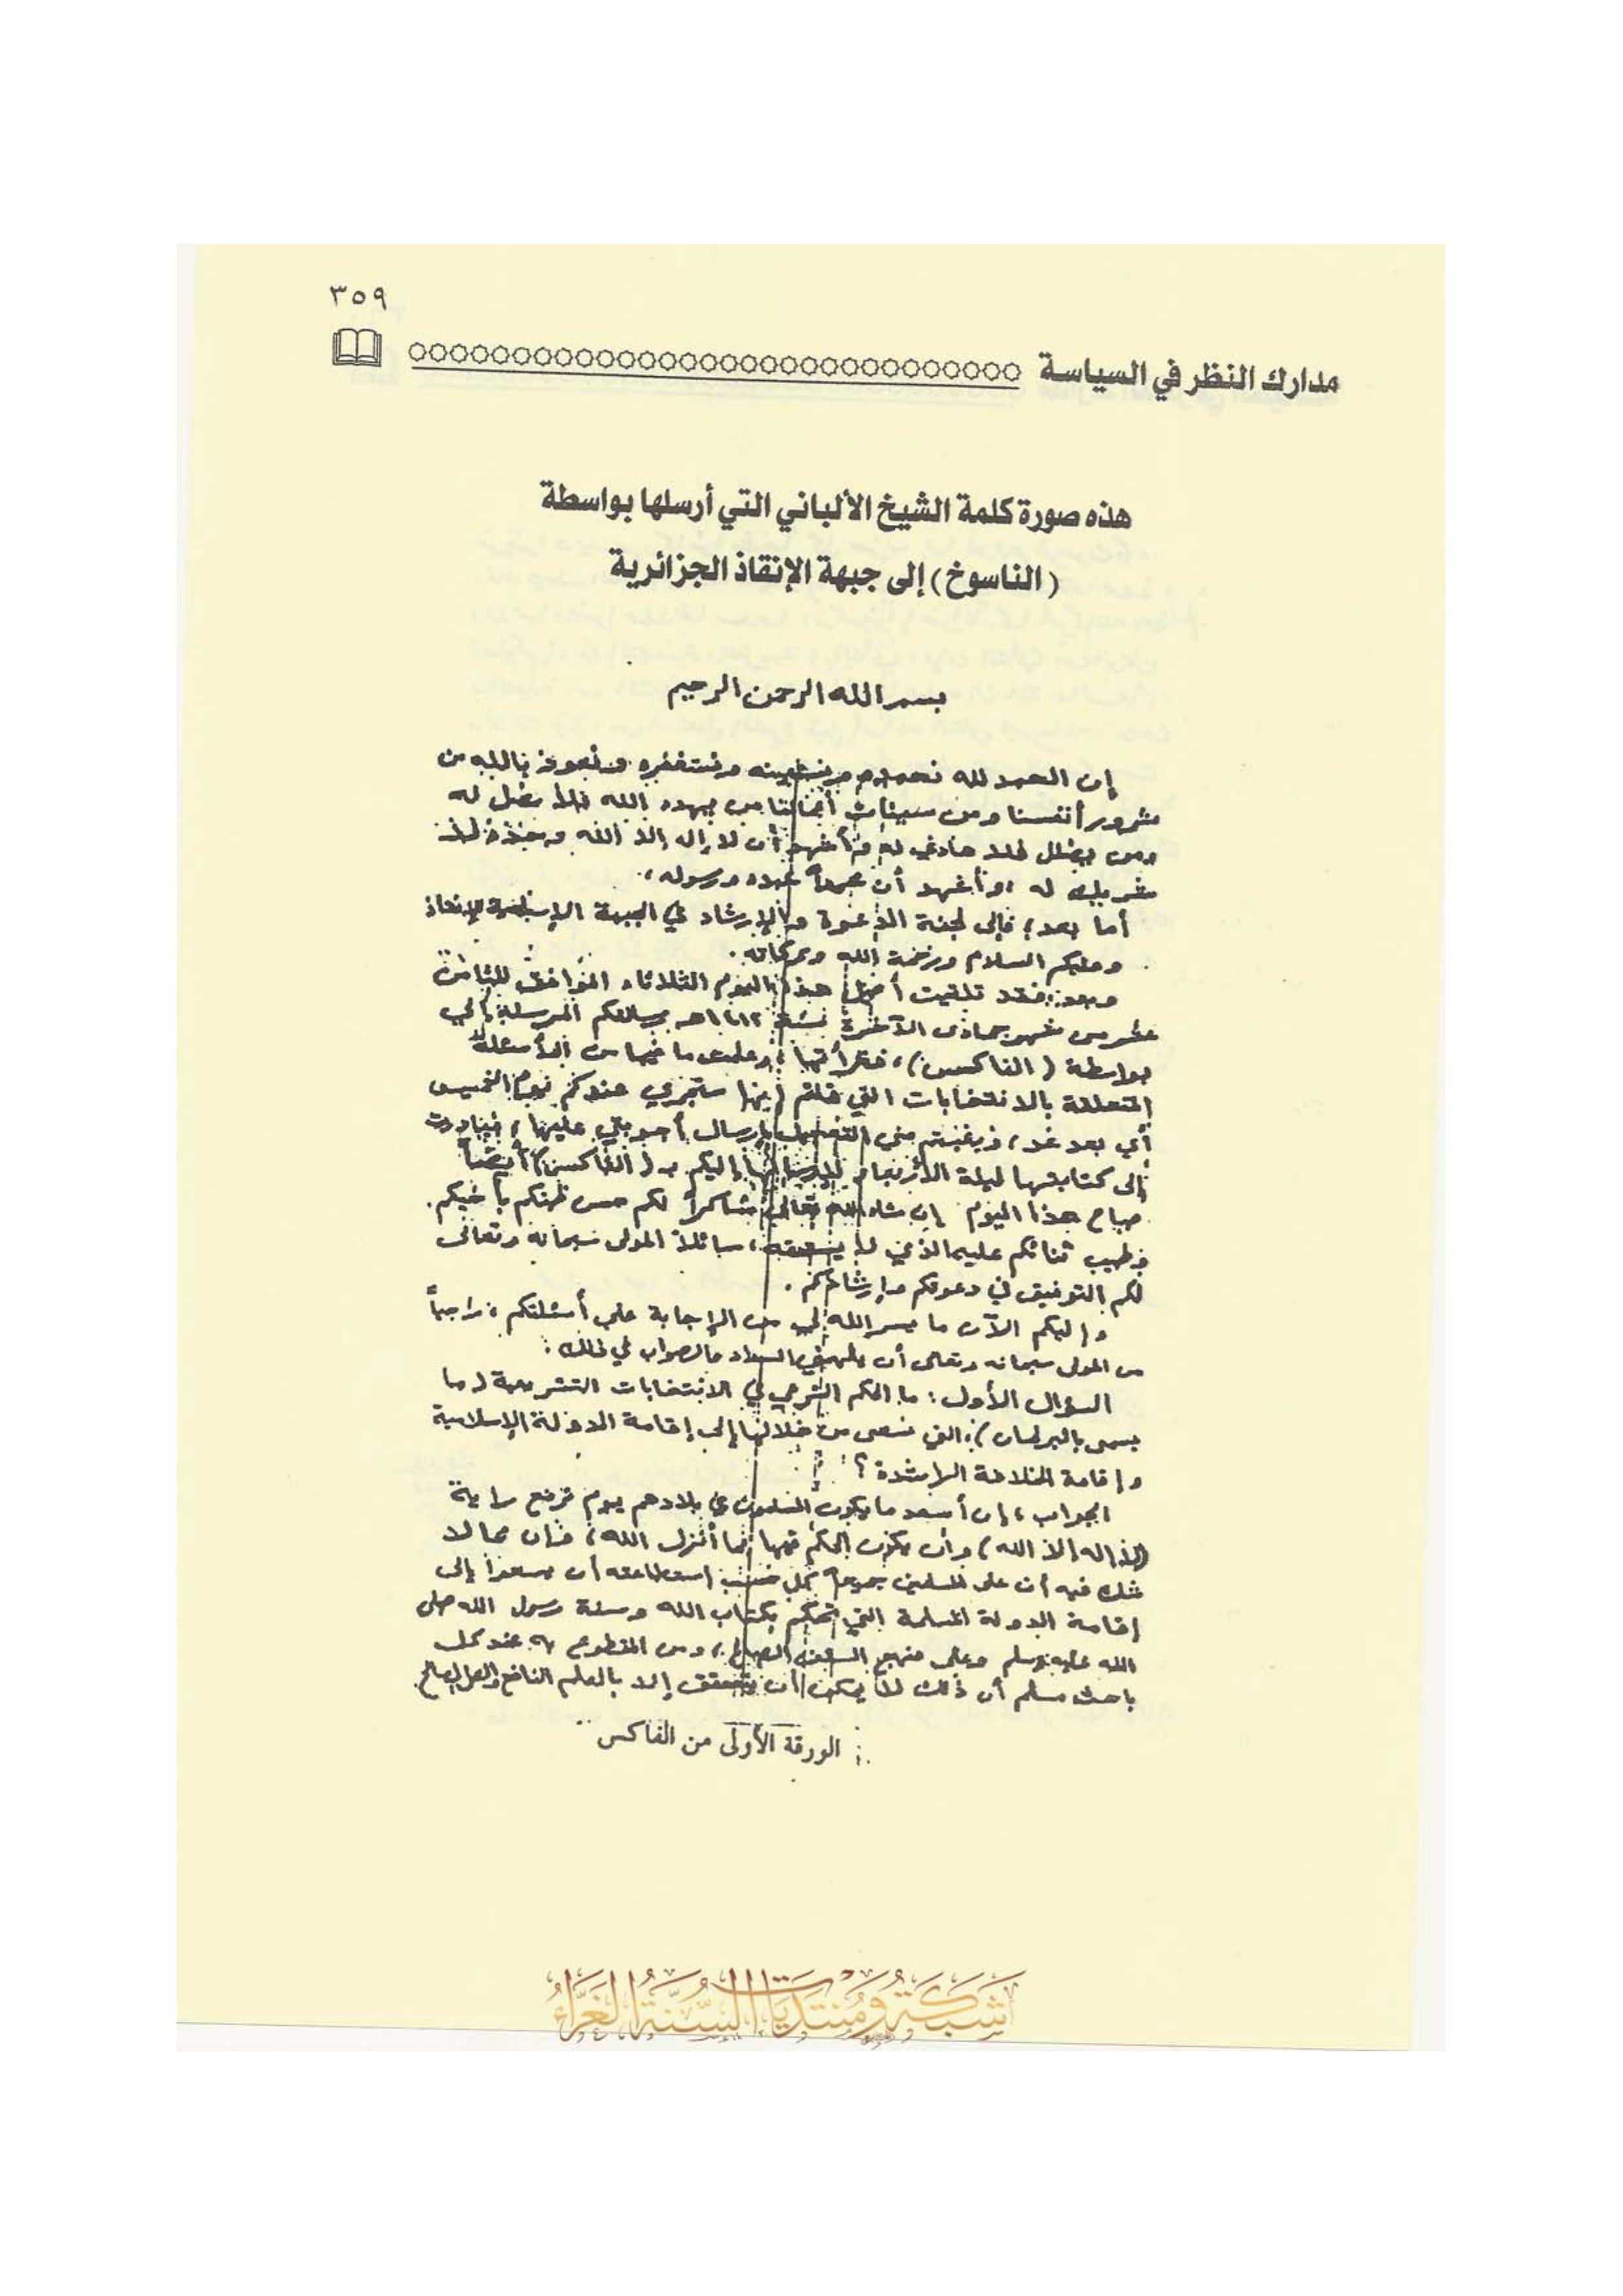 ٣٥٩
مدارك النظر في السياسة
هذه صورة كلمة الشيخ الألباني التي أرسلها بواسطة
(الناسوخ) إلى جبهة الإنقاذ الجزائرية
بسم الله الرحمن الرحيم
إن الحمد لله نحمده ونستعينه ونستغفره ونعوذ بالله من
شرور أنفسنا ومن سيئات أعمالنا من يهده الله فلا مضل له
ومن يضلل فلا هادي له وأشهد أن لا إله إلا الله وحده لا
شريك له وأشهد أن محمداً عبده ورسوله.
أما بعد؛ فإلى لجنة الدعوة والإرشاد في الجبهة الإسلامية للإنقاذ
وعليكم السلام ورحمة الله وبركاته.
وبعد: فقد تلقيت أصيل هذا اليوم الثلاثاء الموافق للثامن
عشر من شهر جمادى الآخرة سنة ١٤١٢هـ رسالتكم المرسلة إلي
بواسطة (الفاكس)، فقرأتها، وعلمت ما فيها من الأسئلة
المتعلقة بالانتخابات التي قلتم إنها ستجري عندكم يوم الخميس
أي بعد غد، ورغبتم مني التعجيل بإرسال أجوبتي عليها، فبادرت
إلى كتابتها ليلة الأربعاء لإرسالها إليكم بـ(الفاكس) أيضاً
صباح هذا اليوم إن شاء الله تعالى، شاكراً لكم حسن ظنكم بأخيكم.
وطيب ثنائكم عليه الذي لا يستحقه، سائلاً المولى سبحانه وتعالى
لكم التوفيق في دعوتكم وإرشادكم.
وإليكم الآن ما يسر الله لي من الإجابة على أسئلتكم، راجياً
من المولى سبحانه وتعالى أن يلهمني السداد والصواب في ذلك:
السؤال الأول: ما الحكم الشرعي في الانتخابات التشريعية (ما
يسمى بالبرلمان) التي نسعى من خلالها إلى إقامة الدولة الإسلامية
وإقامة الخلافة الراشدة؟
الجواب: إن أسعد ما يكون المسلمون في بلادهم يوم ترفع راية
(لا إله إلا الله) وأن يكون الحكم فيها بما أنزل الله، فإن مما لا
شك فيه أن على المسلمين جميعاً كل حسب استطاعته أن يسعوا إلى
إقامة الدولة المسلمة التي تحكم بكتاب الله وسنة رسول الله صلى
الله عليه وسلم وعلى منهج السلف الصالح، ومن المقطوع به عند كل
باحث مسلم أن ذلك لا يمكن أن يتحقق إلا بالعلم النافع والعمل الصالح.
الورقة الأولى من الفاكس
شبكة ومنتديات السنة الغراء